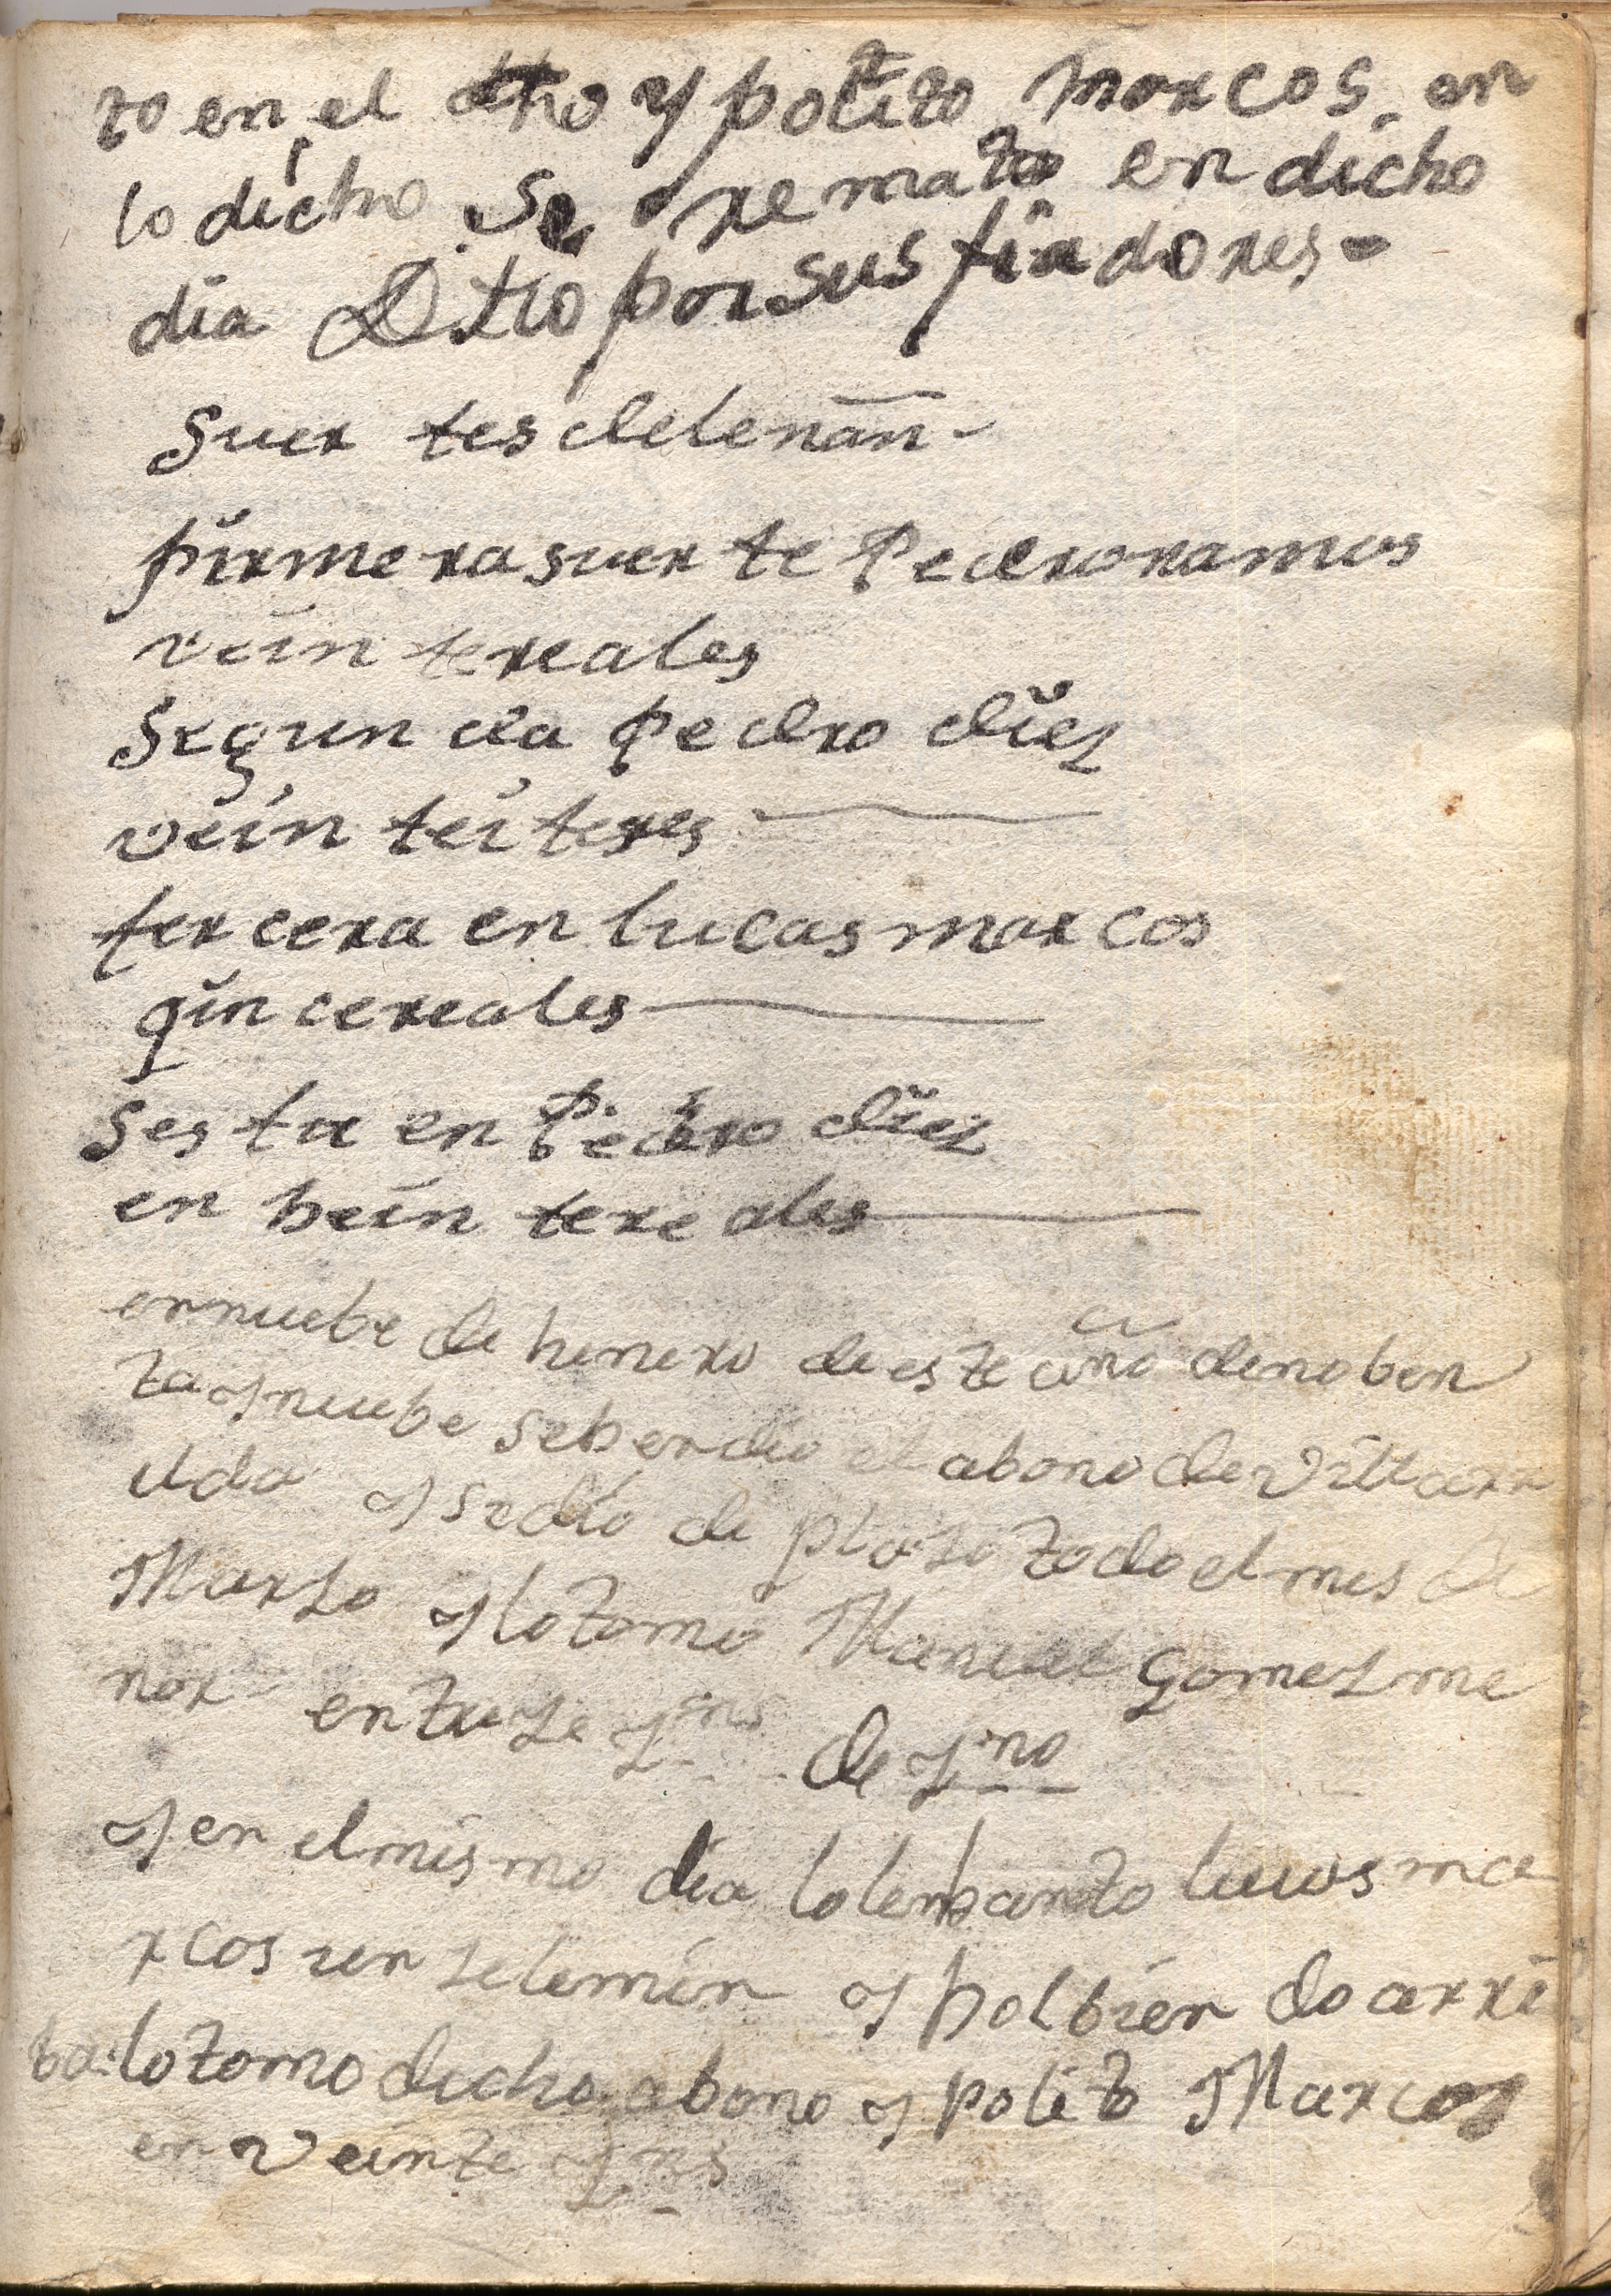 to en el dho ypolito marcos en
lo dicho se rematο en dicho
dia Dtto por sus fiadores
Suer tes delenan
pirmera suer te Pedro ramos
vein tereales
Segun da Pedro diez
vein tei teres
ter cera en lucas marcos
qin cereales
Ses ta en Pedro diez
en bein tere ales
en nuebe de henero de este año de noben
ta y nuebe se bendio el abono de villarr
ilda y se dio de plazo todo el mes de
Marzo y lo tomo Manuel Gomez me
nor en treze de
y en el mismo dia lo lebanto lucas ma
rcos un zelemin y bolbien do arri
ba lo tomo dicho abono ypolito Marcos
en veinte